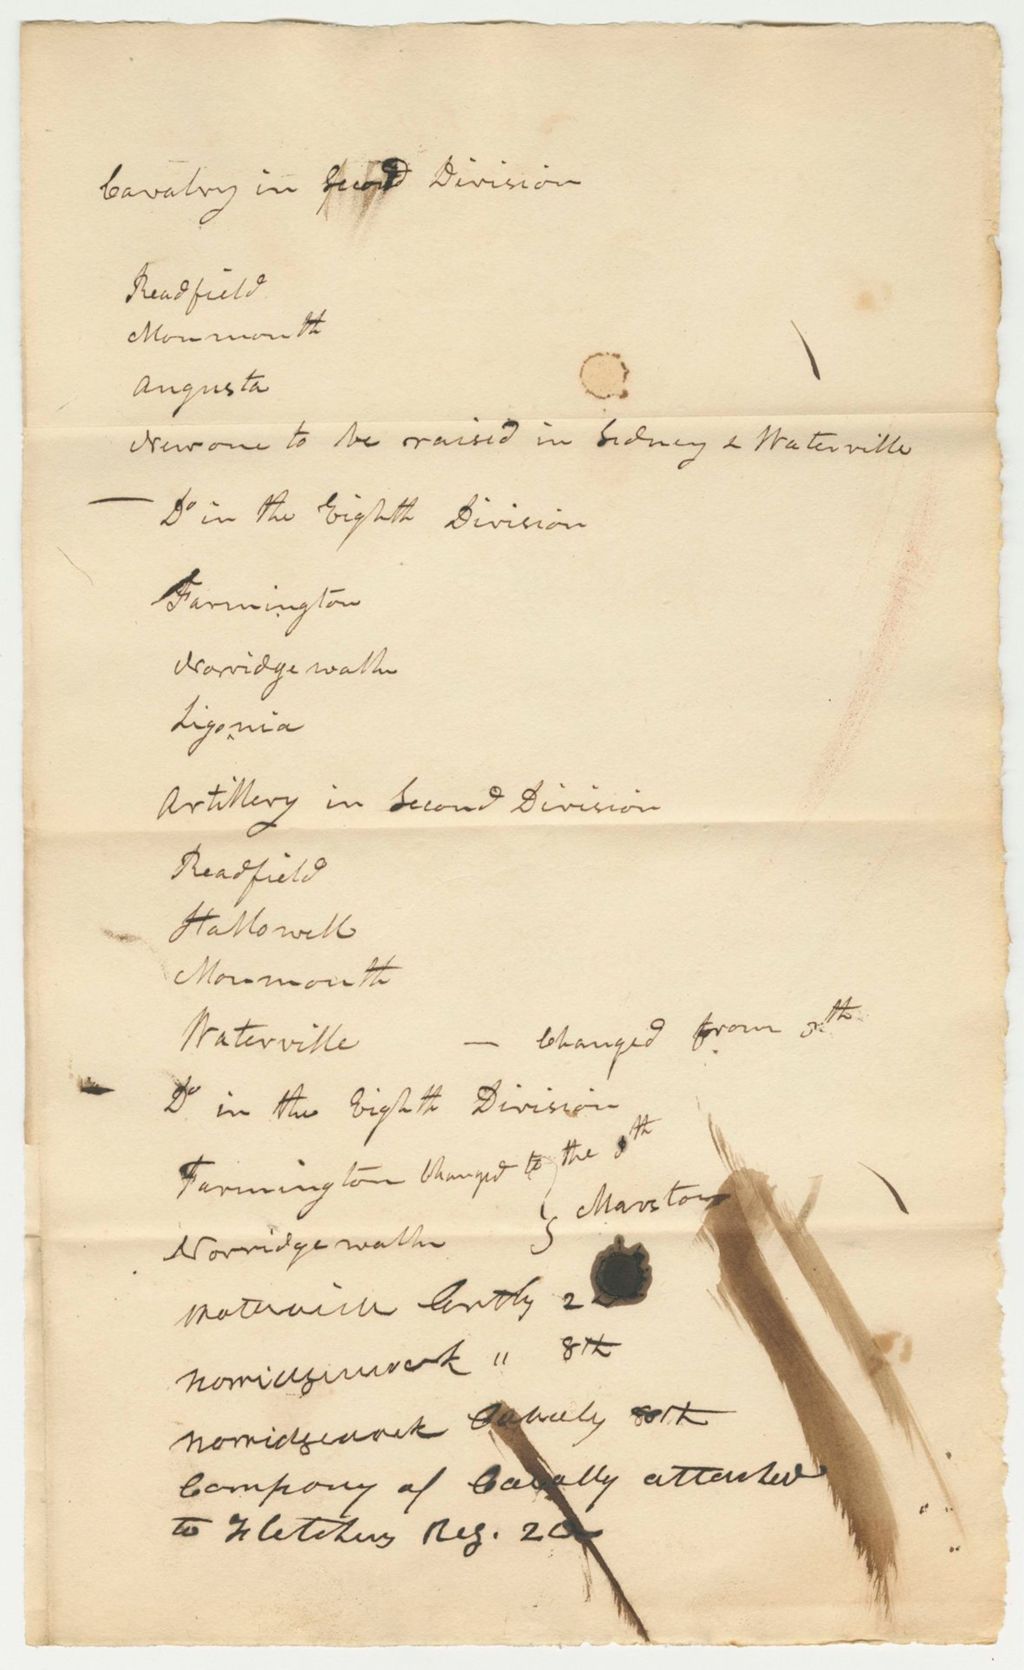 Cavalry in Second Division
Readfield
Monmouth
Augusta
New one to be raised in Sidney & Waterville
Do in the Eighth Division
Farmington
Norridgewalk
Ligonia
Artillery in Second Division
Readfield
Hallowell
Monmouth
Waterville — Changed from 8th
Do in the Eighth Division
Farmington Changed to the 8th
Norridgewalk } Marston
Waterville Artly 2
Norridgewock " 8th
Norridgewock Cavaly 8th
Company of Cavally attached
to Fletchers Reg. 2d